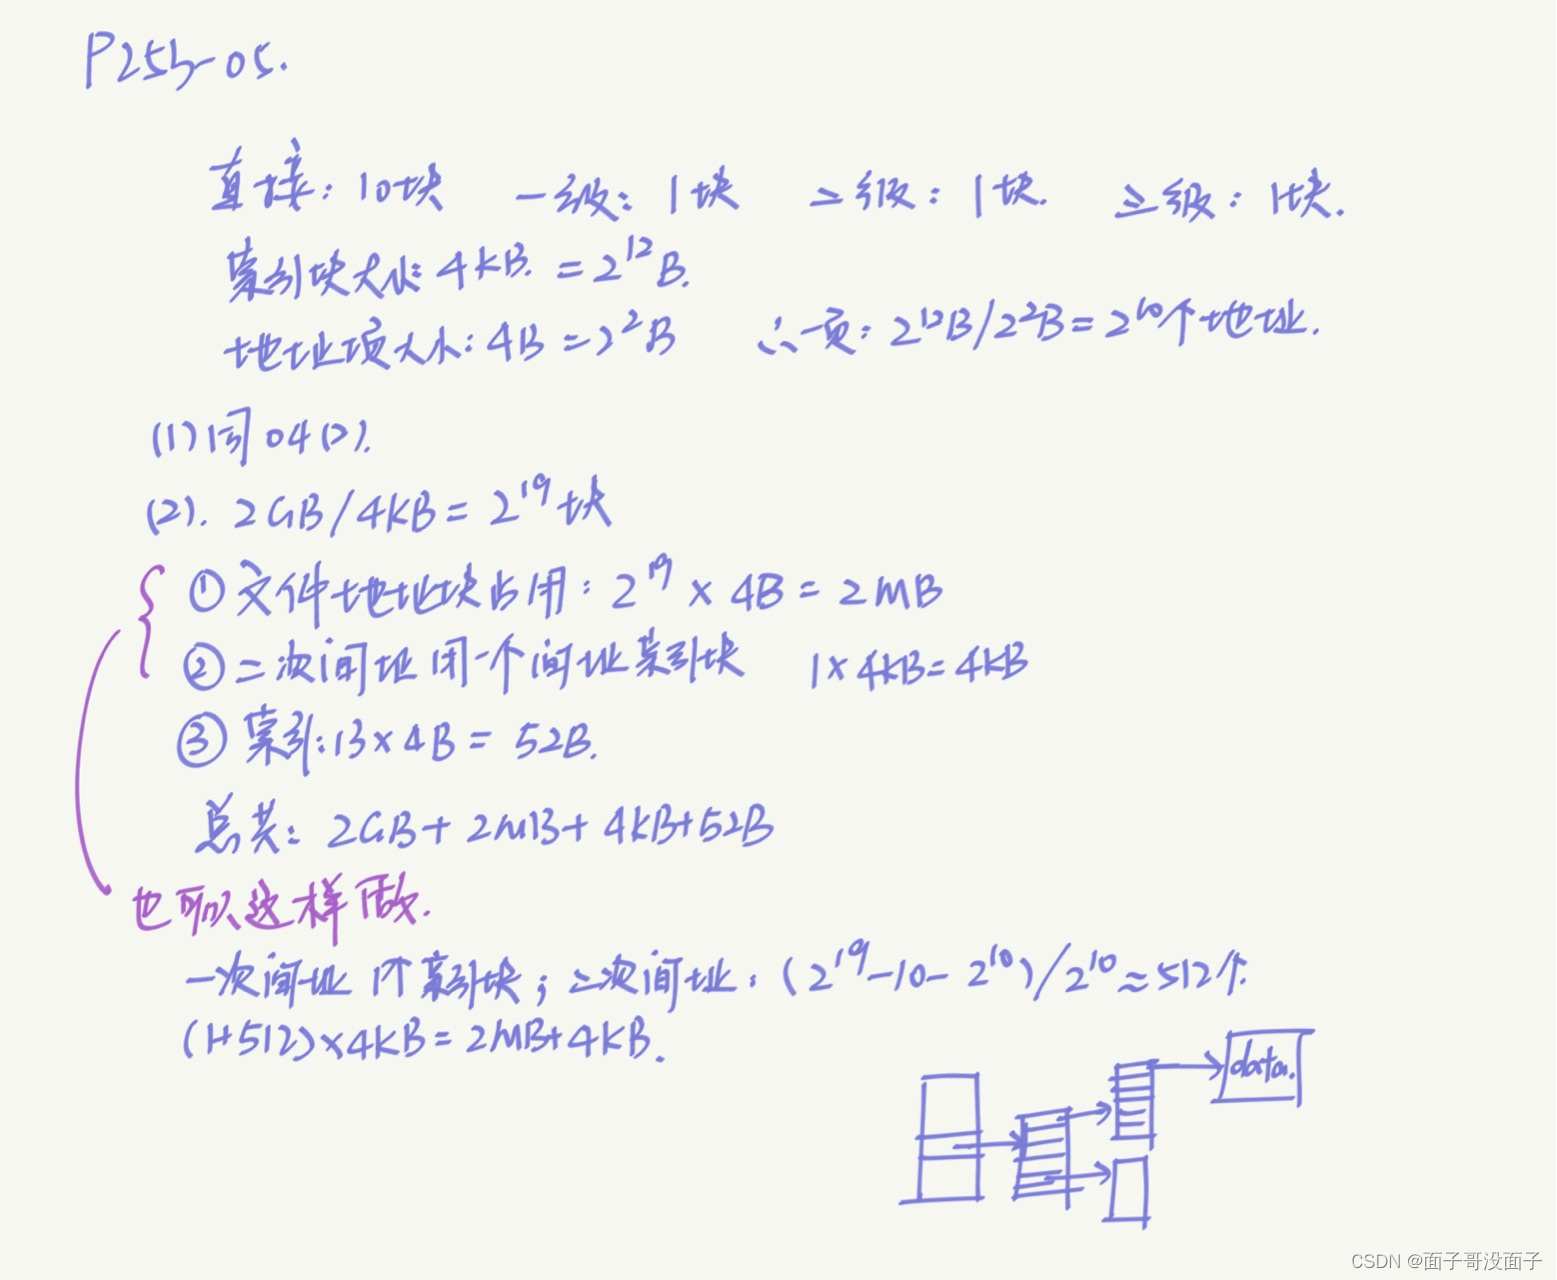 P253-05.
直接：10块 一级：1块 二级：1块. 三级：1块.
索引块大小：4KB. = 2¹²B.
地址项大小：4B = 2²B ∴一页：2¹²B/2²B = 2¹⁰个地址.
(1) 同04(2).
(2). 2GB/4KB = 2¹⁹块
① 文件地址块占用：2¹⁹ × 4B = 2MB
② 二次间址用一个间址索引块 1×4KB=4KB
③ 索引：13×4B = 52B.
总共：2GB+2MB+4KB+52B
也可以这样做.
一次间址 1个索引块；二次间址：(2¹⁹-10-2¹⁰)/2¹⁰≈512个.
(1+512)×4KB = 2MB+4KB.
data.
CSDN @面子哥没面子